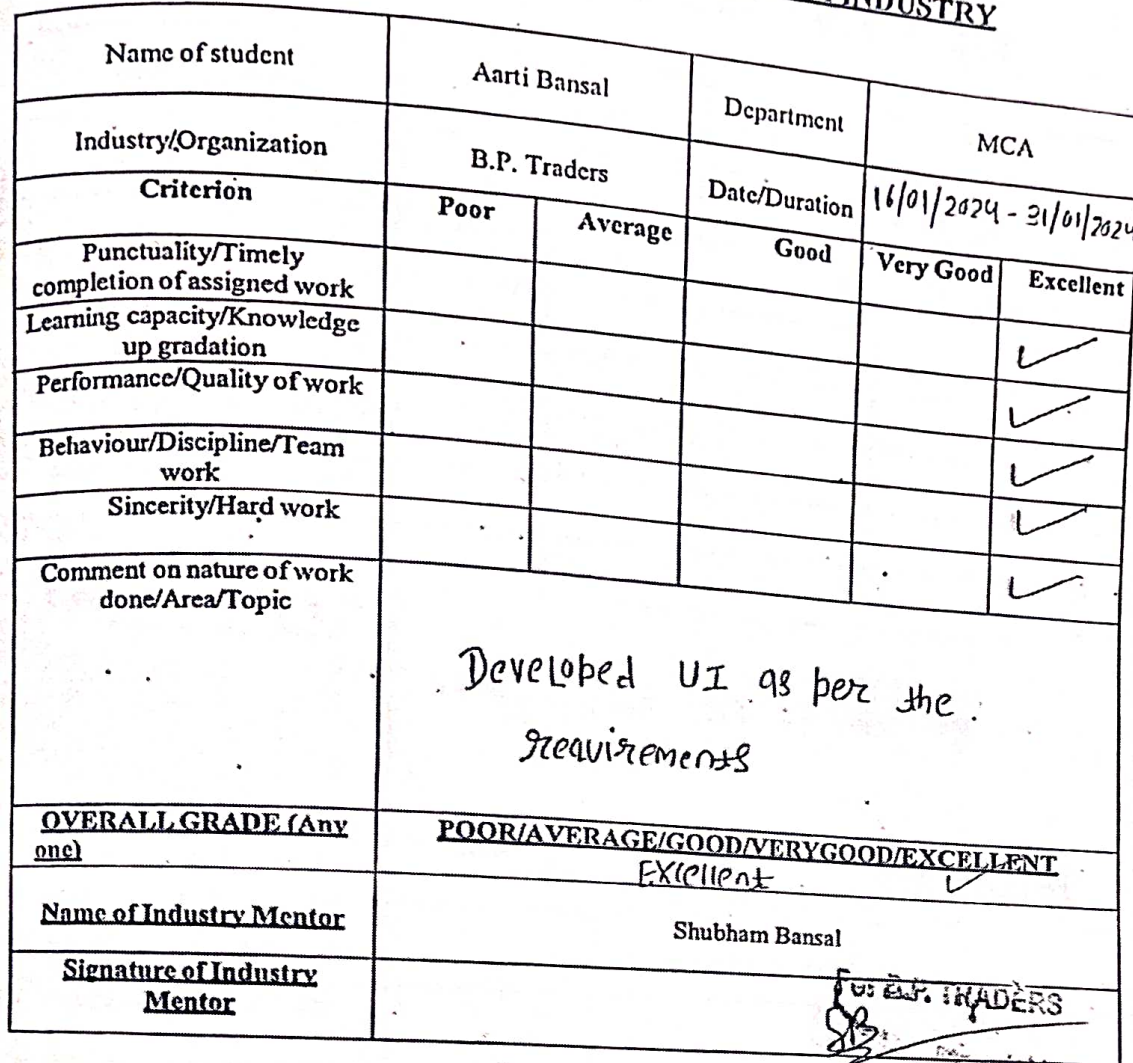 INDUSTRY
Name of student Aarti Bansal Department MCA
Industry/Organization B.P. Traders Date/Duration 16/01/2024 - 31/01/2024
Criterion Poor Average Good Very Good Excellent
Punctuality/Timely
completion of assigned work ✓
Learning capacity/Knowledge
up gradation ✓
Performance/Quality of work ✓
Behaviour/Discipline/Team
work ✓
Sincerity/Hard work ✓
Comment on nature of work
done/Area/Topic
Developed UI as per the
requirements
OVERALL GRADE (Any
one)
POOR/AVERAGE/GOOD/VERYGOOD/EXCELLENT
Excellent ✓
Name of Industry Mentor Shubham Bansal
Signature of Industry
Mentor
For B.P. TRADERS
SB